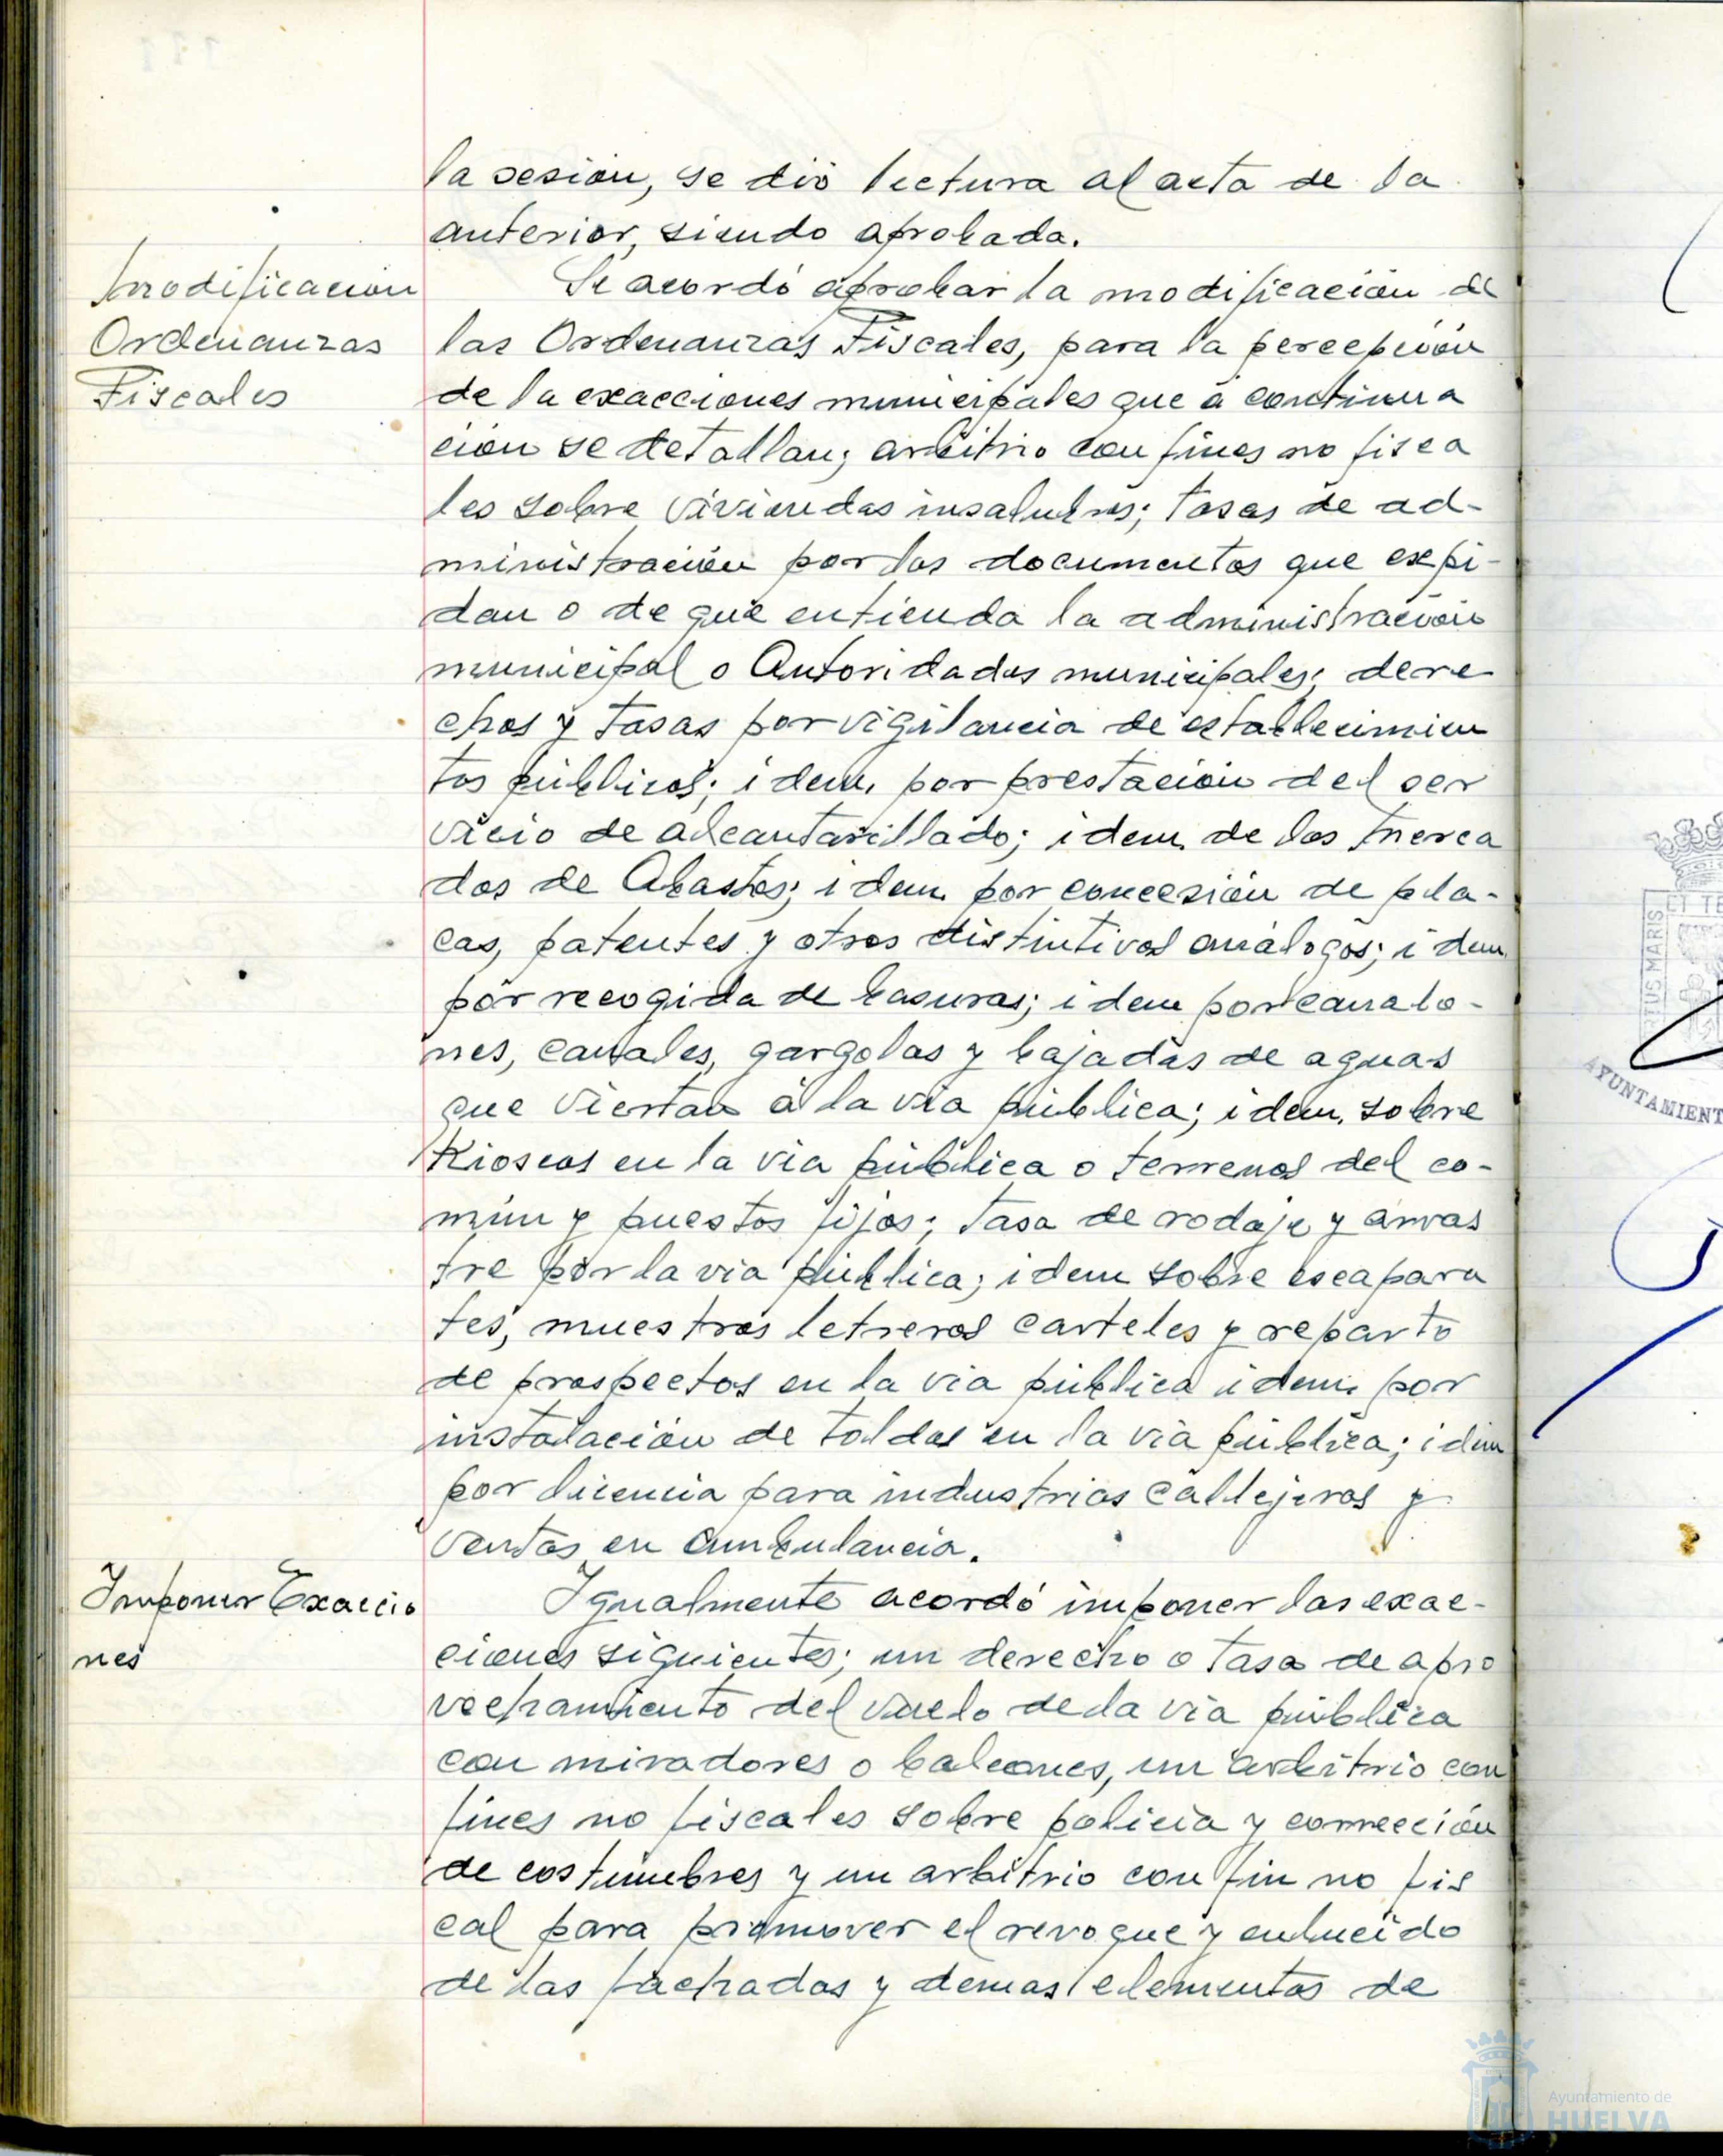 la sesión, se dió lectura al acta de la
anterior, siendo aprobada.
Modificación
Ordenanzas
Fiscales
Se acordó aprobar la modificación de
las Ordenanzas Fiscales, para la percepción
de la exacciones municipales que a continua
ción se detallan; arbitrio con fines no fisca
les sobre viviendas insalubres; tasas de ad-
ministración por los documentos que expi-
dan o de que entienda la administración
municipal o Autoridades municipales; dere
chos y tasas por vigilancia de establecimien
tos públicos; idem. por prestación del ser
vicio de alcantarillado; idem. de los Merca
dos de Abastos; idem. por concesión de pla-
cas, patentes y otros distintivos análogos; idem.
por recogida de basuras; idem por canalo-
nes, canales, gargolas y bajadas de aguas
que viertan a la via pública; idem. sobre
Kioscos en la via pública o terrenos del co-
mún y puestos fijos; tasa de rodaje y arras
tre por la via pública; idem sobre escapara
tes, muestras letreros carteles y reparto
de prospectos en la via pública idem. por
instalación de toldos en la via pública; idem
por licencia para industrias callejeras y
ventas en ambulancia.
Imponer Exaccio
nes
Igualmente acordó imponer las exac-
ciones siguientes; un derecho o tasa de apro
vechamiento del vuelo de la via pública
con miradores o balcones, un arbitrio con
fines no fiscales sobre policía y corrección
de costumbres y un arbitrio con fin no fis
cal para promover el revoque y enlucido
de las fachadas y demas elementos de
AYUNTAMIENT
Ayuntamiento de
HUELVA